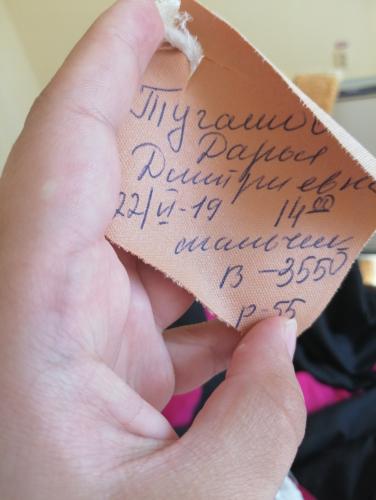 Тугашов
Дарья
Дмитриевна
22/VI-19 14 00
мальчик
В - 3550
Р-55